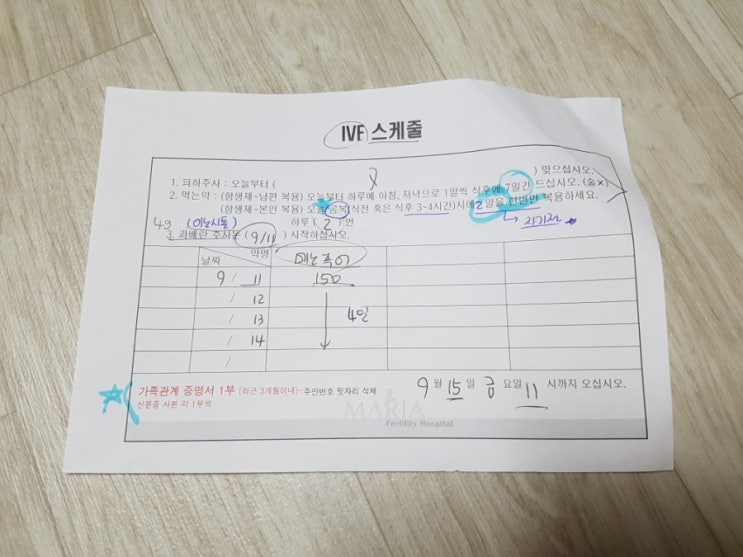 IVF 스케줄
1. 피하주사 : 오늘부터 ( X ) 맞으십시오.
2. 먹는약 : (항생제-남편 복용) 오늘부터 하루에 아침, 저녁으로 1알씩 식후에 7일간 드십시오. (술x)
(항생제-본인 복용) 오늘 (공복)식전 혹은 식후 3-4시간)사에 2알을 한번만 복용하세요.
4g (이노시톨) 하루 ( 2 ) 번
3. 과배란 주사는 ( 9/11 ) 시작하십시오.
날짜 약명 메노푸어
9 / 11 150
/ 12
/ 13 4일
/ 14
/
가족관계 증명서 1부 (최근 3개월이내)- 주민번호 뒷자리 삭제
신분증 사본 각 1부씩
9 월 15 일 금 요일 11 시까지 오십시오.
MARIA
Fertility Hospital